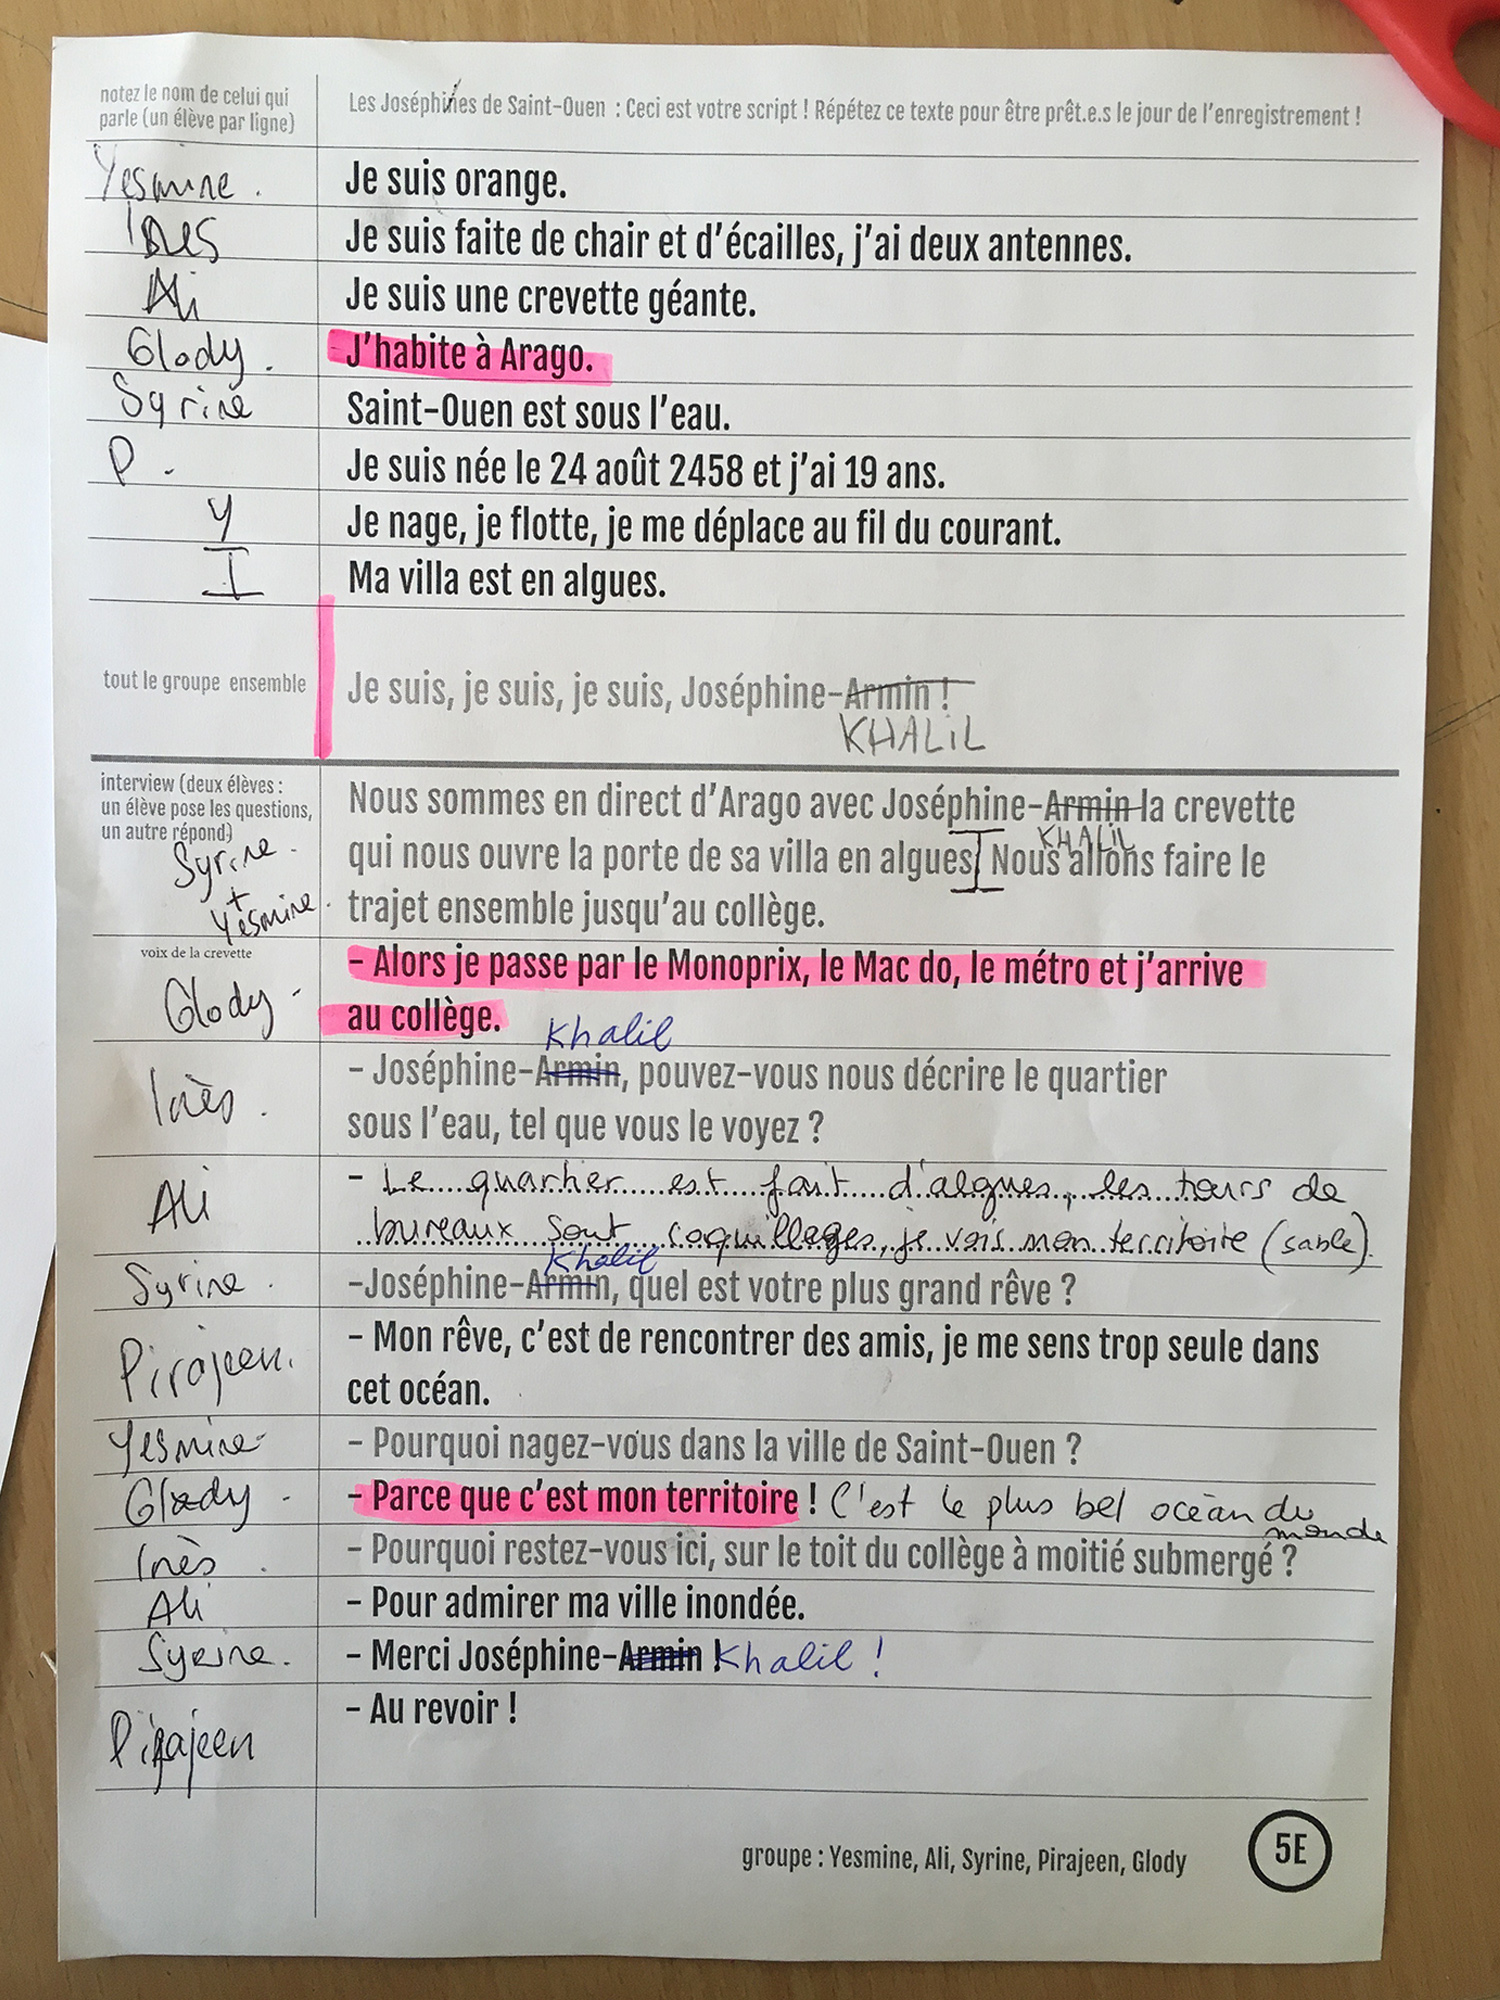 notez le nom de celui qui
parle (un élève par ligne)
Les Joséphines de Saint-Ouen : Ceci est votre script ! Répétez ce texte pour être prêt.e.s le jour de l'enregistrement !
Yesmine. Je suis orange.
INES Je suis faite de chair et d'écailles, j'ai deux antennes.
Ali Je suis une crevette géante.
Glody. J'habite à Arago.
Syrine Saint-Ouen est sous l'eau.
P. Je suis née le 24 août 2458 et j'ai 19 ans.
Y Je nage, je flotte, je me déplace au fil du courant.
I Ma villa est en algues.
tout le groupe ensemble Je suis, je suis, je suis, Joséphine-Armin !
KHALIL
interview (deux élèves :
un élève pose les questions,
un autre répond)
Syrine.
+
Yesmine.
Nous sommes en direct d'Arago avec Joséphine-Armin la crevette
KHALIL
qui nous ouvre la porte de sa villa en algues. Nous allons faire le
trajet ensemble jusqu'au collège.
voix de la crevette
Glody - – Alors je passe par le Monoprix, le Mac do, le métro et j'arrive
au collège.
Khalil
Inès. – Joséphine-Armin, pouvez-vous nous décrire le quartier
sous l'eau, tel que vous le voyez ?
Ali – Le quartier est fait d'algues, les tours de
bureaux sont coquillages, je vois mon territoire (sable).
Khalil
Syrine. –Joséphine-Armin, quel est votre plus grand rêve ?
Pirajeen. – Mon rêve, c'est de rencontrer des amis, je me sens trop seule dans
cet océan.
Yesmine – Pourquoi nagez-vous dans la ville de Saint-Ouen ?
Glody - – Parce que c'est mon territoire ! C'est le plus bel océan du
monde
Inès. – Pourquoi restez-vous ici, sur le toit du collège à moitié submergé ?
Ali – Pour admirer ma ville inondée.
Syrine. – Merci Joséphine-Armin ! Khalil !
Pirajeen – Au revoir !
groupe : Yesmine, Ali, Syrine, Pirajeen, Glody
5E